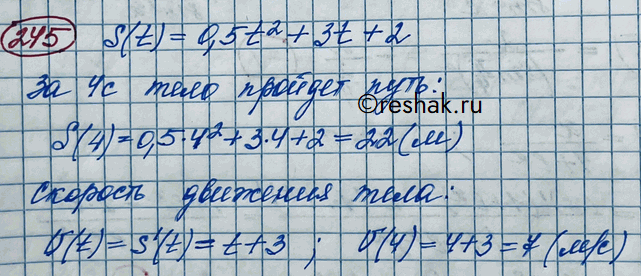 245 S(t) = 0,5t² + 3t + 2
За 4с тело пройдет путь:
©reshak.ru
S(4) = 0,5·4² + 3·4 + 2 = 22 (м)
скорость движения тела:
V(t) = S'(t) = t + 3 ; V(4) = 4+3 = 7 (м/с)